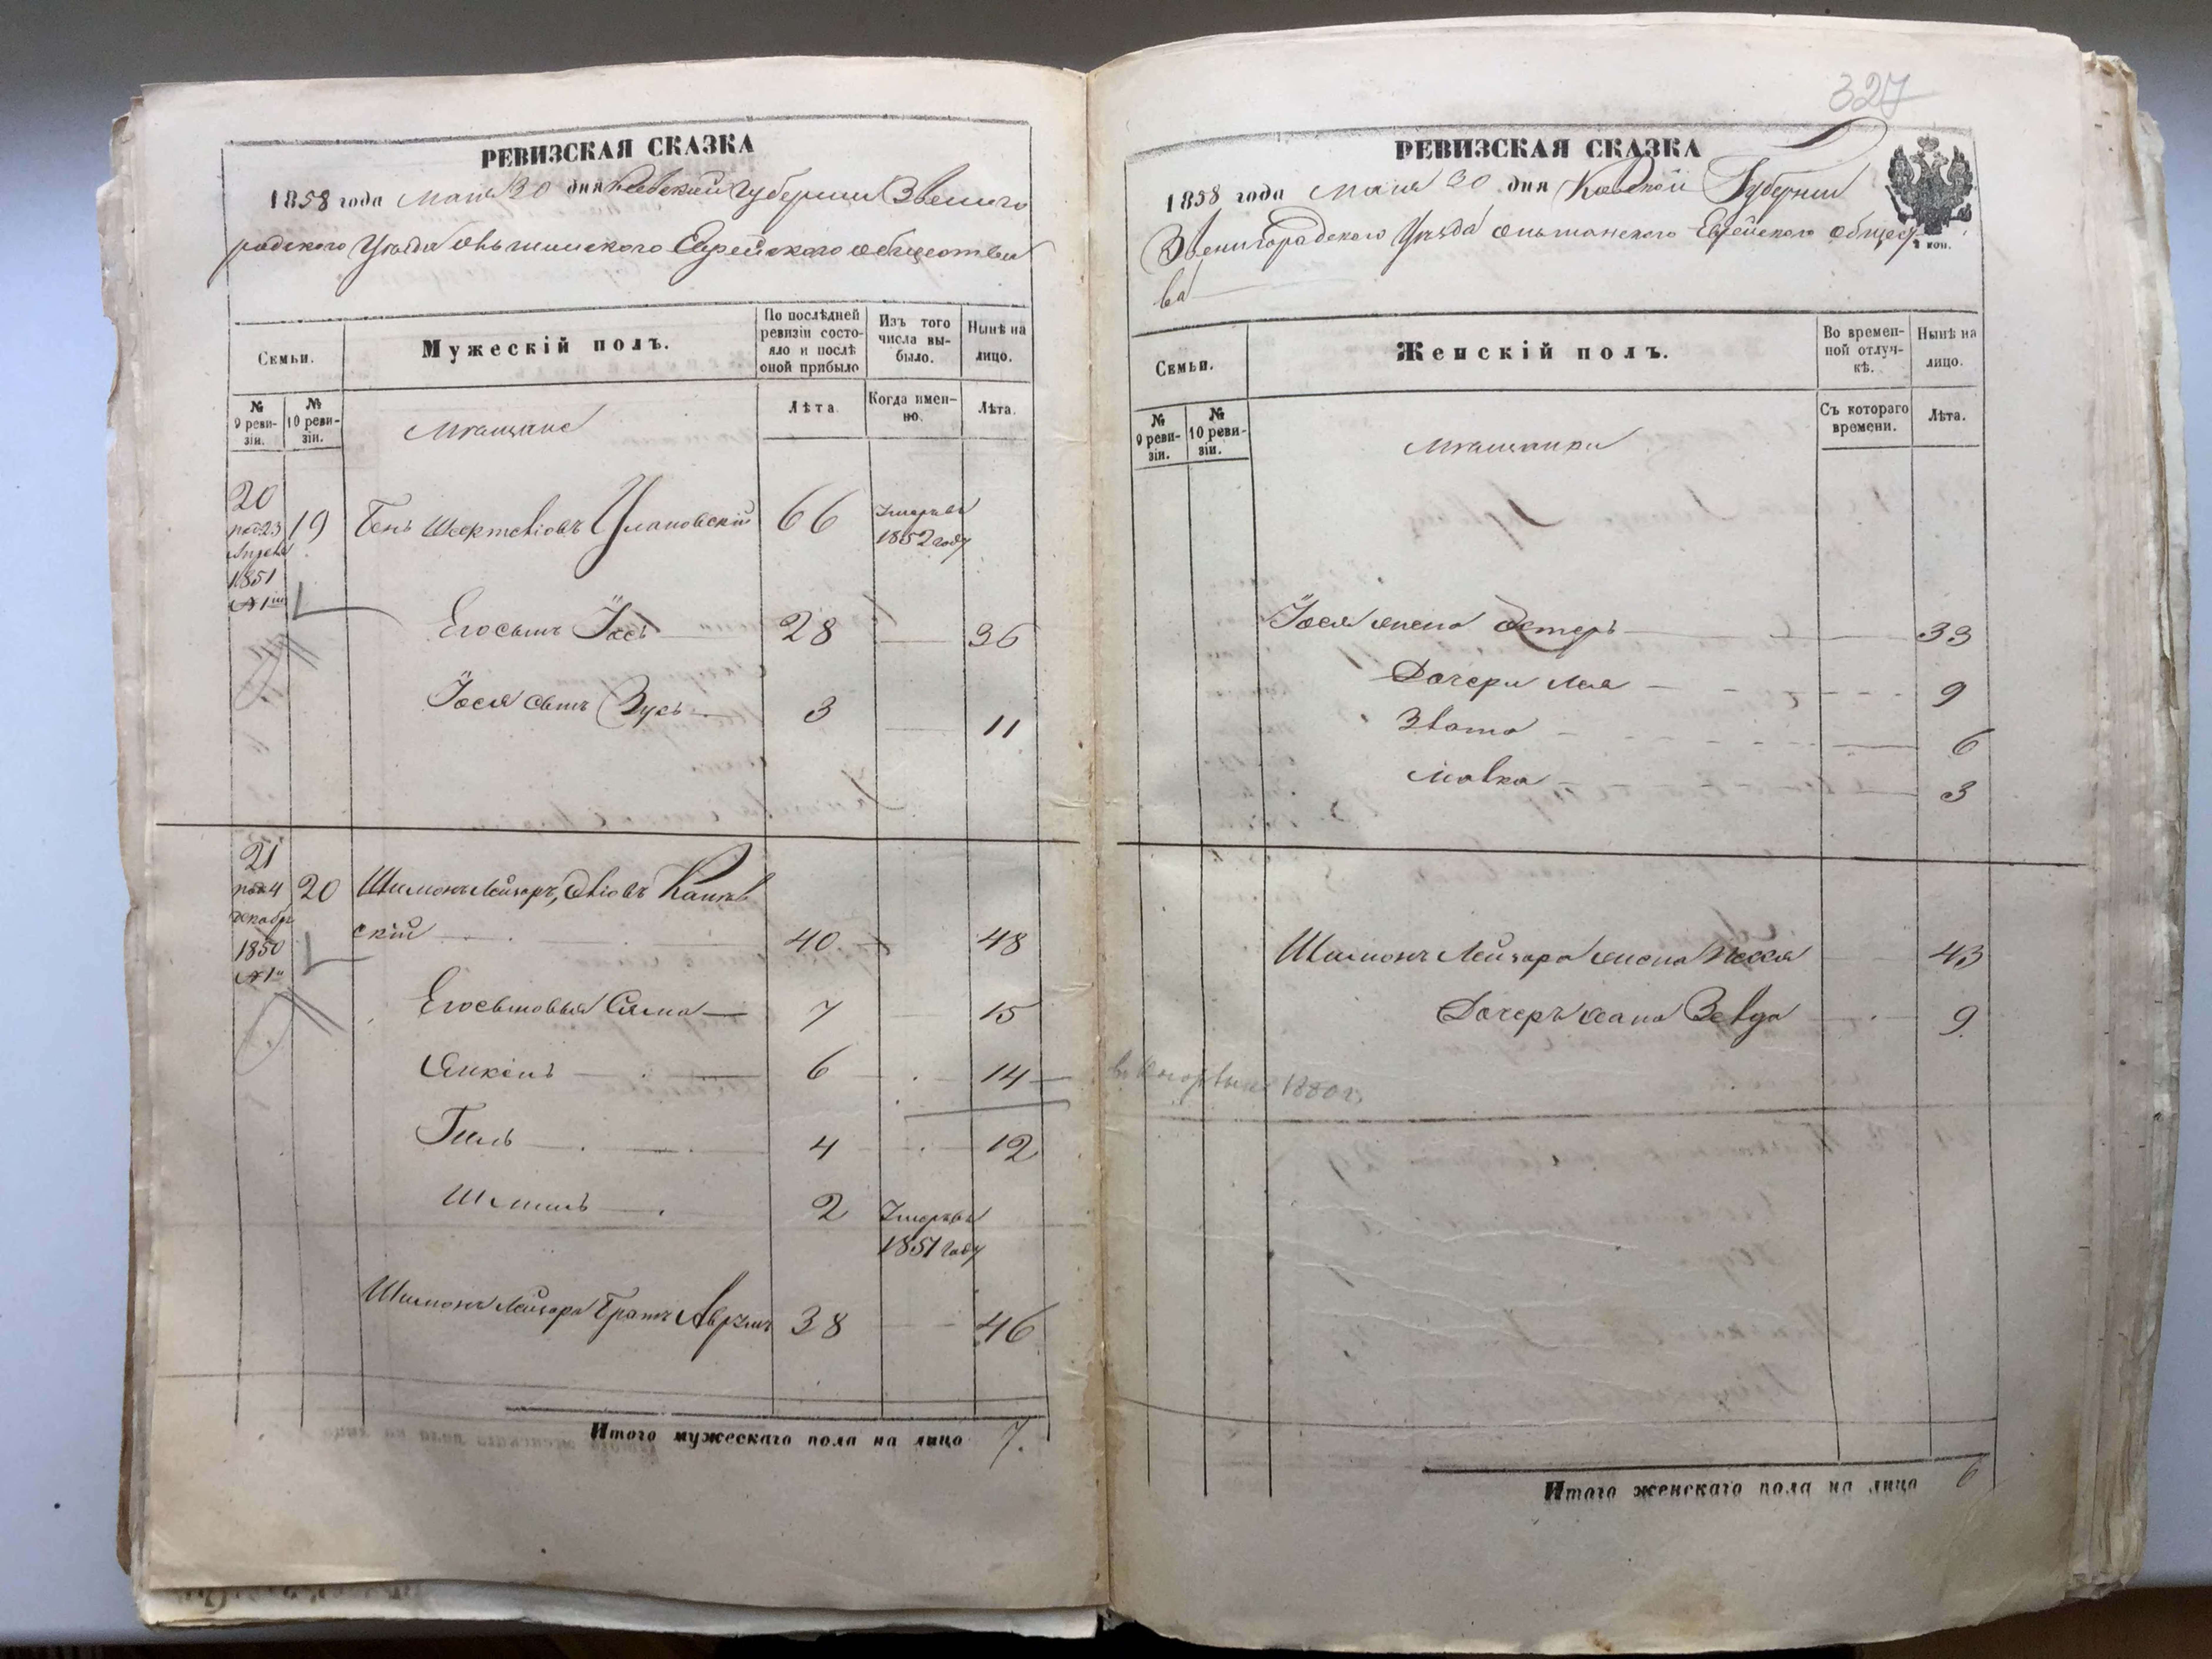 РЕВИЗСКАЯ СКАЗКА
1858 года Мая 30 дня Киевской Губернии Звениго
родского Уѣзда Ольшанского Еврейского общества
Семьи.
Мужескій полъ.
По послѣдней ревизіи состояло и послѣ оной прибыло
Изъ того числа выбыло.
Нынѣ на лицо.
№ 9 ревизіи.
№ 10 ревизіи.
Мѣщане
Лѣта.
Когда именно.
Лѣта.
20
19
Бень Улановскій 66 Умеръ въ
1852 году
1851
Его сынъ Іось 28 — 36
Іося сынъ Зусь — 3 — 11
21
20
декабр
1850
Шимонъ Лейзоръ, Канев
скій — 40 48
Его сыновья — 7 — 15
Янкель — 6 — 14
Гиль — 4 — 12
2 Умеръ въ
1851 году
Шимонъ Лейзора Братъ Аврумъ 38 — 46
Итого мужескаго пола на лицо 7.
327
РЕВИЗСКАЯ СКАЗКА
1858 года Мая 30 дня Киевской Губернии
Звенигородского Уѣзда Ольшанского Еврейского общест
ва
2 коп.
Семьи.
Женскій полъ.
Во временной отлучкѣ.
Нынѣ на лицо.
№ 9 ревизіи.
№ 10 ревизіи.
Мѣщанки
Съ котораго времени.
Лѣта.
Іося жена Эстеръ — 33
Дочери Лея — 9
Злота — 6
Малка — 3
Шимонъ Лейзора жена Песся — 43
Дочеръ Хана Зелда — 9
1880 г.
Итого женскаго пола на лицо 6